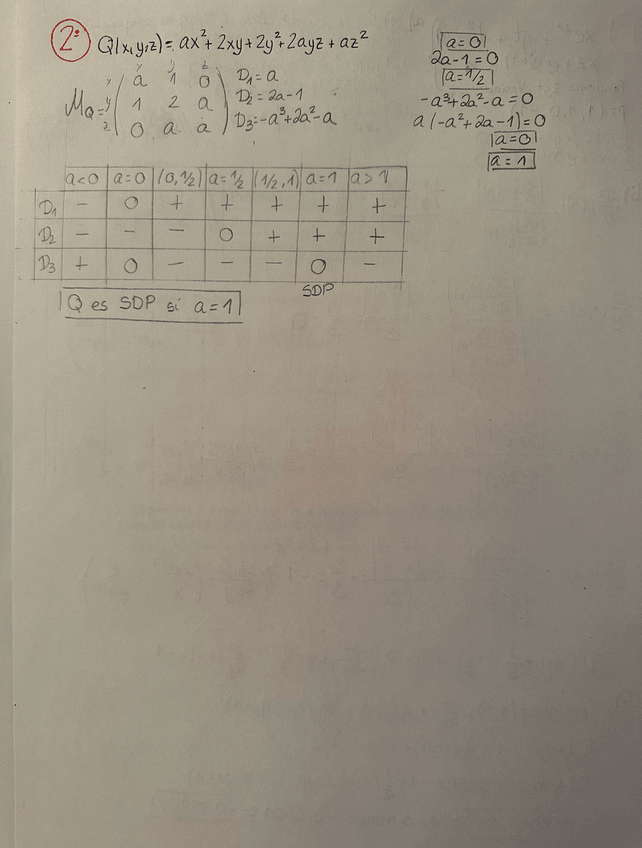 2º Q(x,y,z) = ax² + 2xy + 2y² + 2ayz + az²
x y z
M_Q = x ( a 1 0 ) D₁ = a
y ( 1 2 a ) D₂ = 2a-1
z ( 0 a a ) D₃ = -a³+2a²-a
a=0
2a-1=0
a=1/2
-a³+2a²-a=0
a(-a²+2a-1)=0
a=0
a=1
a<0 a=0 (0,1/2) a=1/2 (1/2,1) a=1 a>1
D₁ - 0 + + + + +
D₂ - - - 0 + + +
D₃ + 0 - - - 0 -
SDP
Q es SDP si a=1